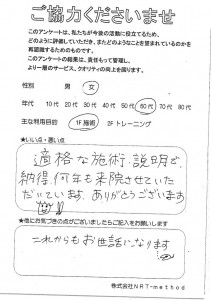 ご協力くださいませ
このアンケートは、私たちが今後の活動に役立てるため、
どのように評価していただいて、またどのようなことを望まれているのかを
再認識するためのものです。
このアンケートの結果は、責任もって管理し、
より一層のサービス、クオリティの向上を図ります。
性別 男 女
年代 10代 20代 30代 40代 50代 60代 70代 80代
主な利用目的 1F施術 2Fトレーニング
★いい点・悪い点
適格な施術・説明で、
納得、何年も来院させていた
だいています。ありがとうございます
★他にお気づきの点がございましたらご記入をお願いします
これからもお世話になります
株式会社NRT-method